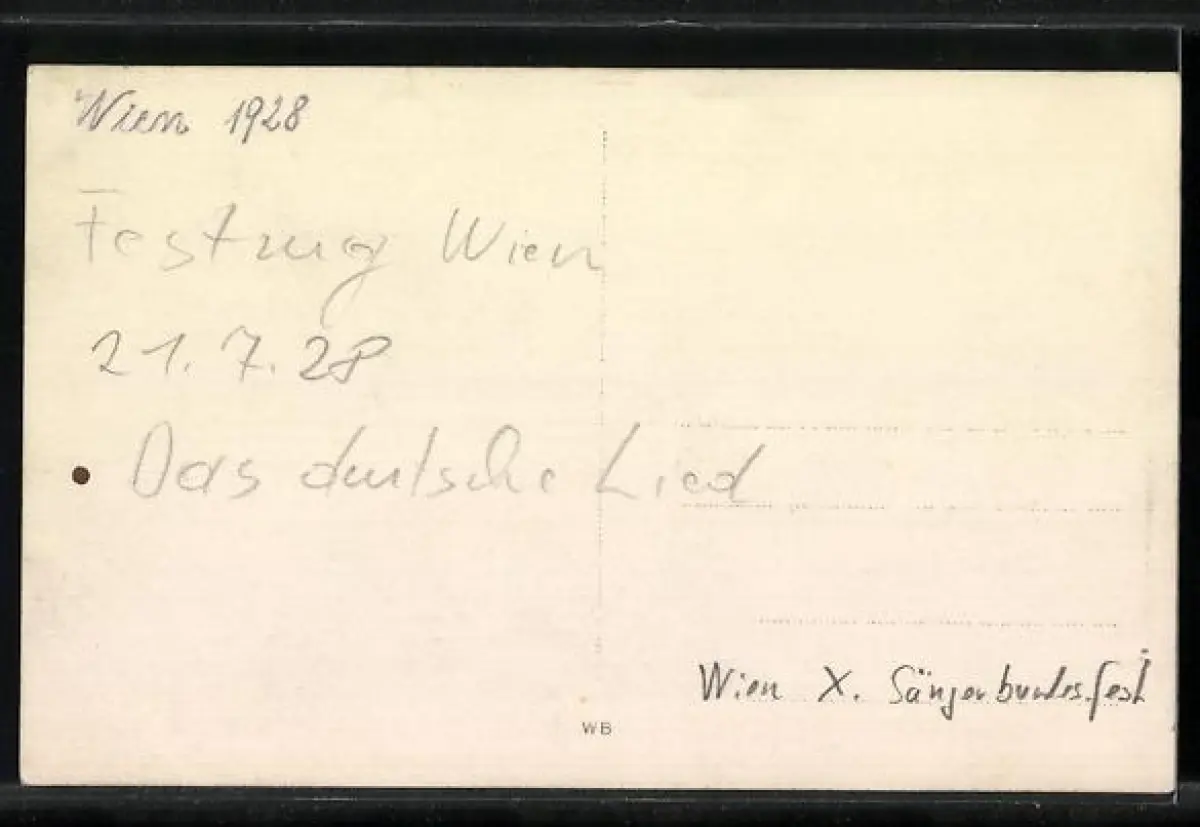 Wien 1928
Festzug Wien
21.7.28
Das deutsche Lied
Wien X. Sängerbundesfest
WB